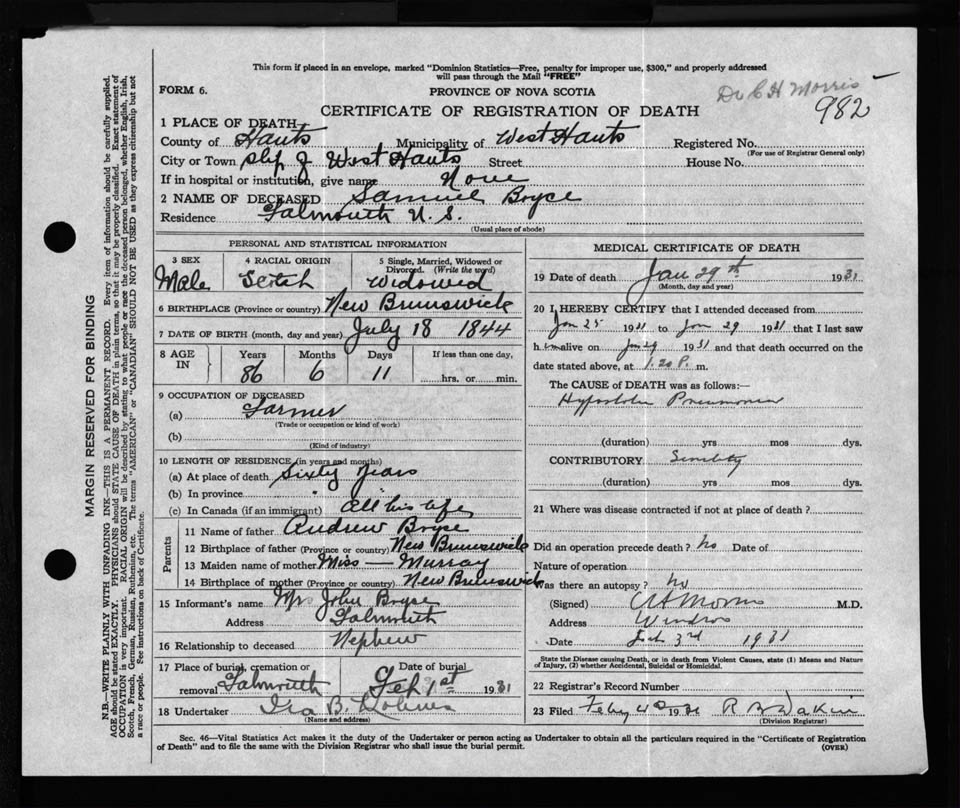 This form if placed in an envelope, marked "Dominion Statistics—Free, penalty for improper use, $300," and properly addressed
will pass through the Mail "FREE"
FORM 6.
PROVINCE OF NOVA SCOTIA
Dr C H Morris
982
CERTIFICATE OF REGISTRATION OF DEATH
1 PLACE OF DEATH
County of Hants Municipality of West Hants Registered No.
(For use of Registrar General only)
City or Town West Hants Street House No.
If in hospital or institution, give name None
2 NAME OF DECEASED Samuel Bryce
Residence Falmouth N. S.
(Usual place of abode)
PERSONAL AND STATISTICAL INFORMATION
3 SEX 4 RACIAL ORIGIN 5 Single, Married, Widowed or Divorced. (Write the word)
Male Scotch Widowed
6 BIRTHPLACE (Province or country) New Brunswick
7 DATE OF BIRTH (month, day and year) July 18 1844
8 AGE IN Years Months Days If less than one day,
86 6 11 hrs. or min.
9 OCCUPATION OF DECEASED
(a) Farmer
(Trade or occupation or kind of work)
(b)
(Kind of industry)
10 LENGTH OF RESIDENCE (in years and months)
(a) At place of death Sixty Years
(b) In province " "
(c) In Canada (if an immigrant) all his life
Parents
11 Name of father Andrew Bryce
12 Birthplace of father (Province or country) New Brunswick
13 Maiden name of mother Miss — Murray
14 Birthplace of mother (Province or country) New Brunswick
15 Informant's name Mr John Bryce
Address Falmouth
16 Relationship to deceased Nephew
17 Place of burial, cremation or removal Falmouth Date of burial Feb 1st 1931
18 Undertaker Ira B.
(Name and address)
MEDICAL CERTIFICATE OF DEATH
19 Date of death Jan 29th 1931
(Month, day and year)
20 I HEREBY CERTIFY that I attended deceased from
Jan 25 1931 to Jan 29 1931 that I last saw
h im alive on Jan 29 1931 and that death occurred on the
date stated above, at 1.20 P. m.
The CAUSE of DEATH was as follows:—
Hypostatic Pneumonia
(duration) yrs mos dys.
CONTRIBUTORY Senility
(duration) yrs mos dys.
21 Where was disease contracted if not at place of death?
Did an operation precede death? No Date of
Nature of operation
Was there an autopsy? No
(Signed) C H Morris M.D.
Address Windsor
Date Feb 3rd 1931
State the Disease causing Death, or in death from Violent Causes, state (1) Means and Nature
of Injury, (2) whether Accidental, Suicidal or Homicidal.
22 Registrar's Record Number
23 Filed Feby 4 1931 Dakin
(Division Registrar)
Sec. 46—Vital Statistics Act makes it the duty of the Undertaker or person acting as Undertaker to obtain all the particulars required in the "Certificate of Registration
of Death" and to file the same with the Division Registrar who shall issue the burial permit. (OVER)
MARGIN RESERVED FOR BINDING
N.B.—WRITE PLAINLY WITH UNFADING INK—THIS IS A PERMANENT RECORD. Every item of information should be carefully supplied.
AGE should be stated EXACTLY. PHYSICIANS should STATE CAUSE OF DEATH in plain terms, so that it may be properly classified. Exact statement of
OCCUPATION is very important. RACIAL ORIGIN will be described by stating to what people or race the deceased person belonged, whether English, Irish,
Scotch, French, German, Russian, Ruthenian, etc. The terms "AMERICAN" or "CANADIAN" SHOULD NOT BE USED as they express citizenship but not
a race or people. See instructions on back of Certificate.